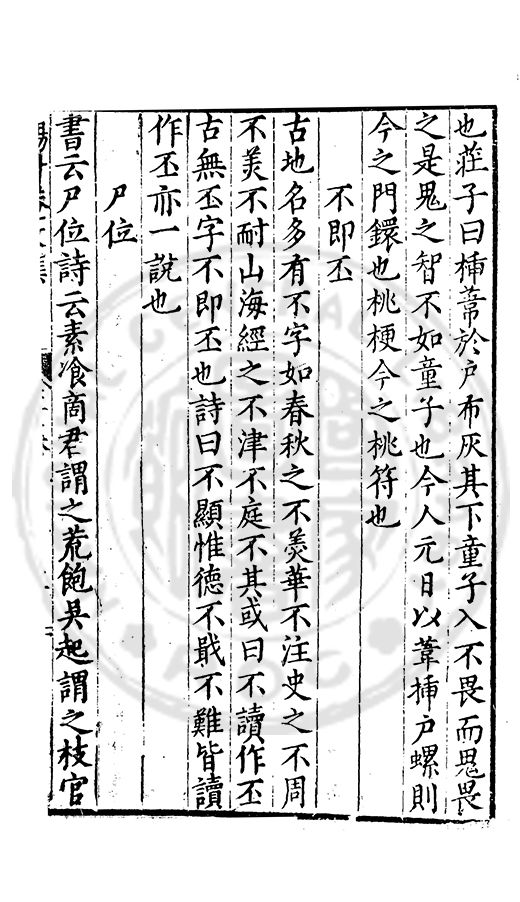 也莊子曰揷葦於戶布灰其下童子入不畏而鬼畏
之是鬼之智不如童子也今人元日以葦揷戶螺則
今之門鐶也桃梗今之桃符也
不即丕
古地名多有不字如春秋之不羹華不注史之不周
不羙不耐山海經之不津不庭不其或曰不讀作丕
古無丕字不即丕也詩曰不顯惟德不戢不難皆讀
作丕亦一說也
尸位
書云尸位詩云素飡商君謂之荒飽吳起謂之枝官